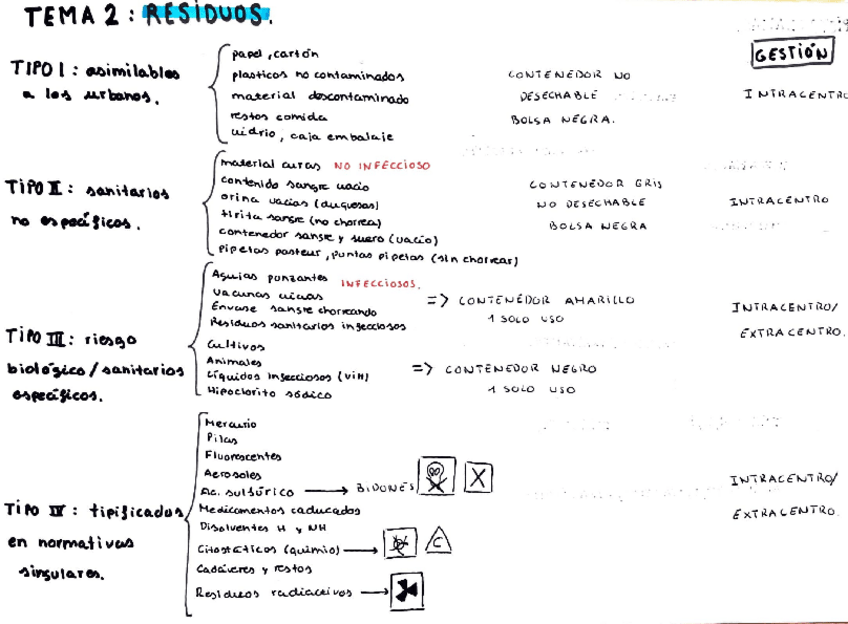 TEMA 2: RESIDUOS.
GESTIÓN
TIPO I: asimilables
a los urbanos.
papel, cartón
plasticos no contaminados
material descontaminado
restos comida
vidrio, caja embalaje
CONTENEDOR NO
DESECHABLE
BOLSA NEGRA.
INTRACENTRO
TIPO II: sanitarios
no específicos.
material curas NO INFECCIOSO
contenido sangre vacio
orina vacias (duquesas)
tirita sangre (no chorrea)
contenedor sangre y suero (vacío)
pipetas pasteur, puntas pipetas (sin chorrear)
CONTENEDOR GRIS
NO DESECHABLE
BOLSA NEGRA
INTRACENTRO
TIPO III: riesgo
biológico/sanitarios
específicos.
Agujas punzantes INFECCIOSOS.
Vacunas vivas
Envase sangre chorreando
Residuos sanitarios infecciosos
Cultivos
Animales
Líquidos infecciosos (VIH)
Hipoclorito sódico
=> CONTENEDOR AMARILLO
1 SOLO USO
=> CONTENEDOR NEGRO
1 SOLO USO
INTRACENTRO/
EXTRACENTRO.
TIPO IV: tipificados
en normativas
singulares.
Mercurio
Pilas
Fluorescentes
Aerosoles
Ac. sulfúrico → BIDONES X
Medicamentos caducados
Disolventes H y NH
Citostáticos (quimio) → C
Cadáveres y restos
Residuos radiactivos →
INTRACENTRO/
EXTRACENTRO.